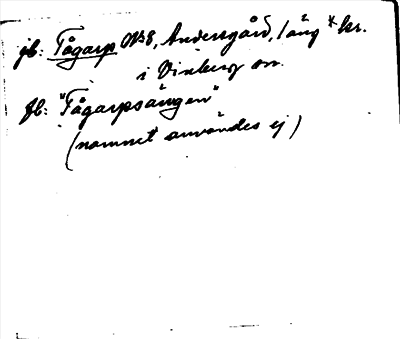 jb: Tågarp № 8, Andersgård, / äng * kr.
i Vinberg sn.
fb: "Tågarpsängen"
(namnet användes ej)